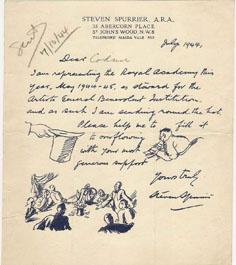 STEVEN SPURRIER, A.R.A.
13 ABERCORN PLACE
ST JOHN'S WOOD N.W.8
TELEPHONE MAIDA VALE
Sent
7/10/44
July 1944.
Dear
I am representing the Royal Academy this
year, May 1944-45, as steward for the
Artists General Benevolent Institution,
and as such I am sending round the hat.
Please help me to fill it
to overflowing
with your most
generous support
Yours truly
Steven Spurrier